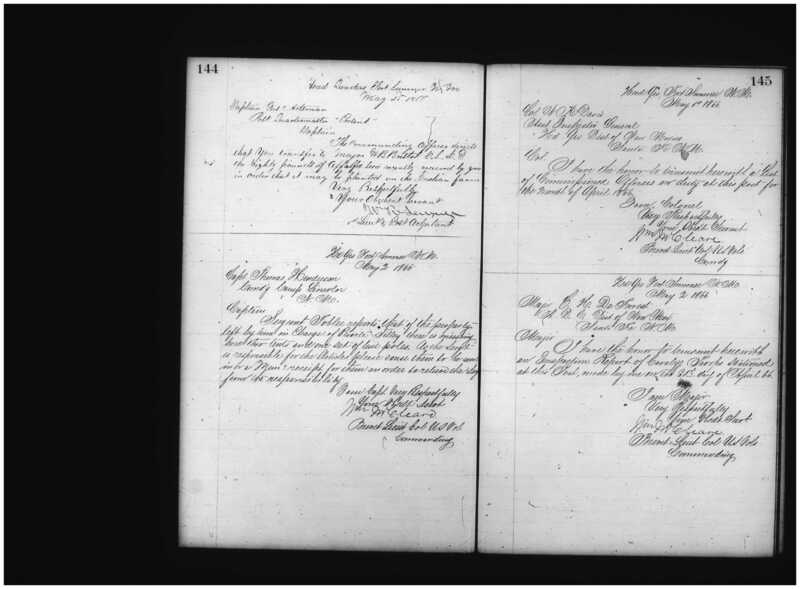 144
Head Quarters Fort Sumner N. M.
May 1st
Captain
Post Quartermaster Present
Captain
The Commanding Officer directs
that you transfer to Major
the Eighty pounds of Alfalfa seed recently received by you
in order that it may be planted on the Indian farm
Very Respectfully
Your Obedient Servant
Lieut & Post Adjutant
Hd Qrs Fort Sumner N. M.
May 2 1866
Capt. Thomas Henderson
Comdg Camp Lincoln
N. Mo.
Captain
Sergeant reports that of the property
left by him in Charge of there is
tent and one set of tent poles. As the Sergt
is responsible for the Articles please cause them to be
in or a receipt for them in order to relieve the Sergt
from the responsibility
I am Capt. Very Respectfully
Your Obdt Servt
Wm McCleave
Brevet Lieut Col U S Vols
Commanding
145
Head Qrs Fort Sumner N. M.
May 1st 1866
Col. W. K. Davis
Asst Inspector General
Hd Qrs Dist of New Mexico
Santa Fe N. M.
Col.
I have the honor to transmit herewith a List
of Commissioned Officers on duty at this post for
the month of April 1866
I am Colonel
Very Respectfully
Your Obdt Servant
Wm McCleave
Brevet Lieut Col U S Vols
Comdg
Hd Qrs Fort Sumner N. M.
May 2 1866
Major C. H. De Forrest
A. A. G. Dist of New Mex
Santa Fe N. M.
Major
I have the honor to transmit herewith
an Inspection Report of Cavalry Stationed
at this Post, made by me on the day of April 66
I am Major
Very Respectfully
Your Obdt Servt
Wm McCleave
Brevet Lieut Col U S Vols
Commanding